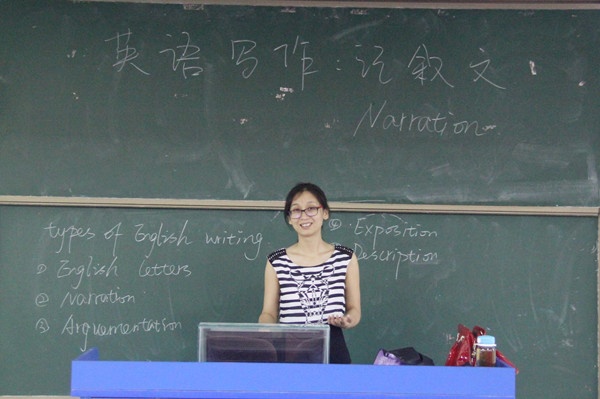 英语写作:记叙文
Narration
types of English writing
① English letters
② Narration
③ Arguementation
④ Exposition
Description